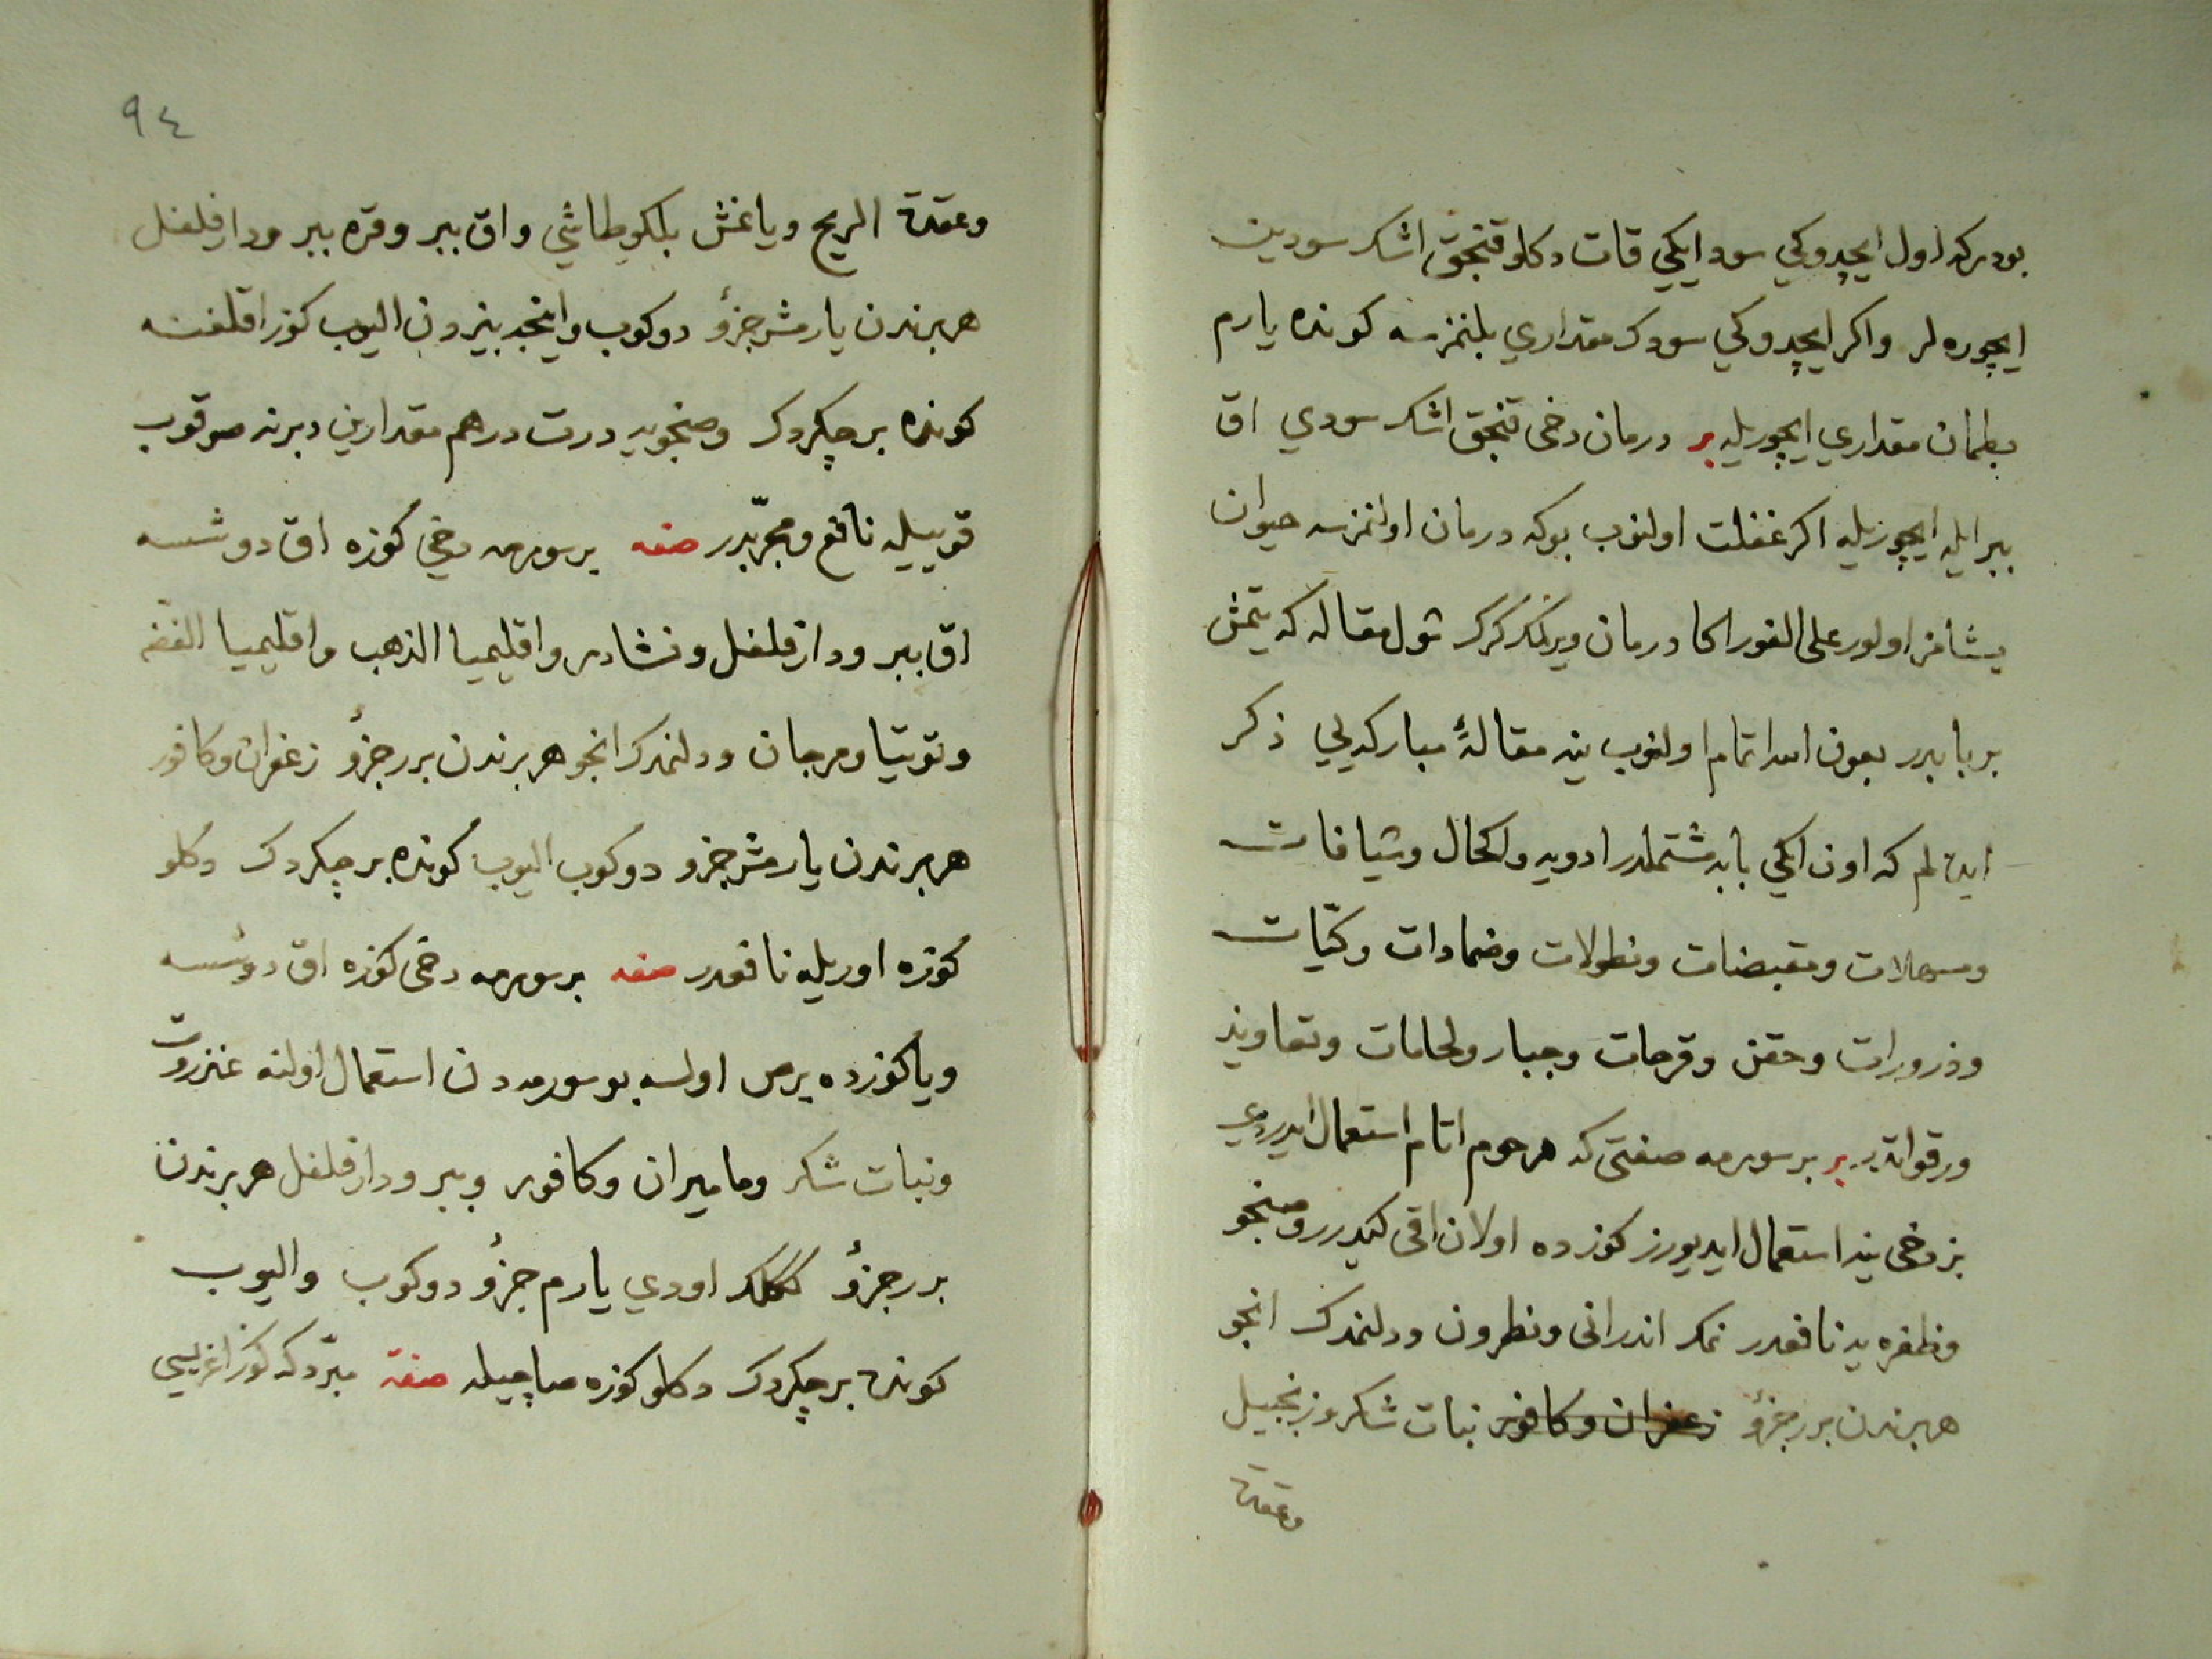 بودركه اول ايچدوكي سود ايكي قات دكلو قنجق اشك سودين
ايچوره لر واكر ايچدوكي سودك مقداري بلنمزسه كونده يارم
بطمان مقداري ايچوريله بر درمان دخى قنجق اشك سودي اق
ببر ايله ايچوريله اكر غفلت اولنوب بوكه درمان اولنمزسه حيوان
يشامز اولور على الفور اكا درمان ويرلمك كرك شول مقاله كه يتمش
بر بابدر بعون الله تمام اولنوب ينه مقالهٔ مباركه يي ذكر
ايده لم كه اون ايكي بابه مشتملدر ادويه واكحال وشيافات
ومسهلات ومقبضات ونطولات وضمادات وكيّات
وذرورات وحقن وقرحات وجبار ولحامات وتعاويذ
ورقواتدر بر سورمه صفتى كه مرحوم اتام استعمال ايدردي
بز دخى ينه استعمال ايديورز كوزده اولان اقى كيدرر وصنجو
وظفره يه نافعدر نمك اندرانى ونطرون ودلنمدك انجو
هربرندن برر جزؤ زعفران وكافور نبات شكر وزنجبيل
وعقدة
٩٤
وعقدة الريح وياغمش بلكو طاشي واق ببر وقره ببر ودارفلفل
هربرندن يارمشر جزؤ دوكوب وانجه بزدن اليوب كوز اقلغنه
كونده بر چكردك وصنجويه درت درهم مقدارين دبرنه صوقوب
قوييله نافع ومجرّبدر صفه بر سورمه دخي كوزه اق دوشسه
اق ببر ودارفلفل ونشادر واقليميا الذهب واقليميا الفضه
وتوتيا ومرجان ودلنمدك انجو هربرندن برر جزؤ زعفران وكافور
هربرندن يارمشر جزو دوكوب اليوب كونده بر چكردك دكلو
كوزه اوريله نافعدر صفه بر سورمه دخى كوزه اق دوشسه
وياكوزده برص اولسه بو سورمه دن استعمال اولنه عنزروت
ونبات شكر وماميران وكافور وببر ودارفلفل هربرندن
برر جزؤ كلك اودي يارم جزؤ دوكوب واليوب
كونده بر چكردك دكلو كوزه صاچيله صفة مبرّد كه كوز اغريسي